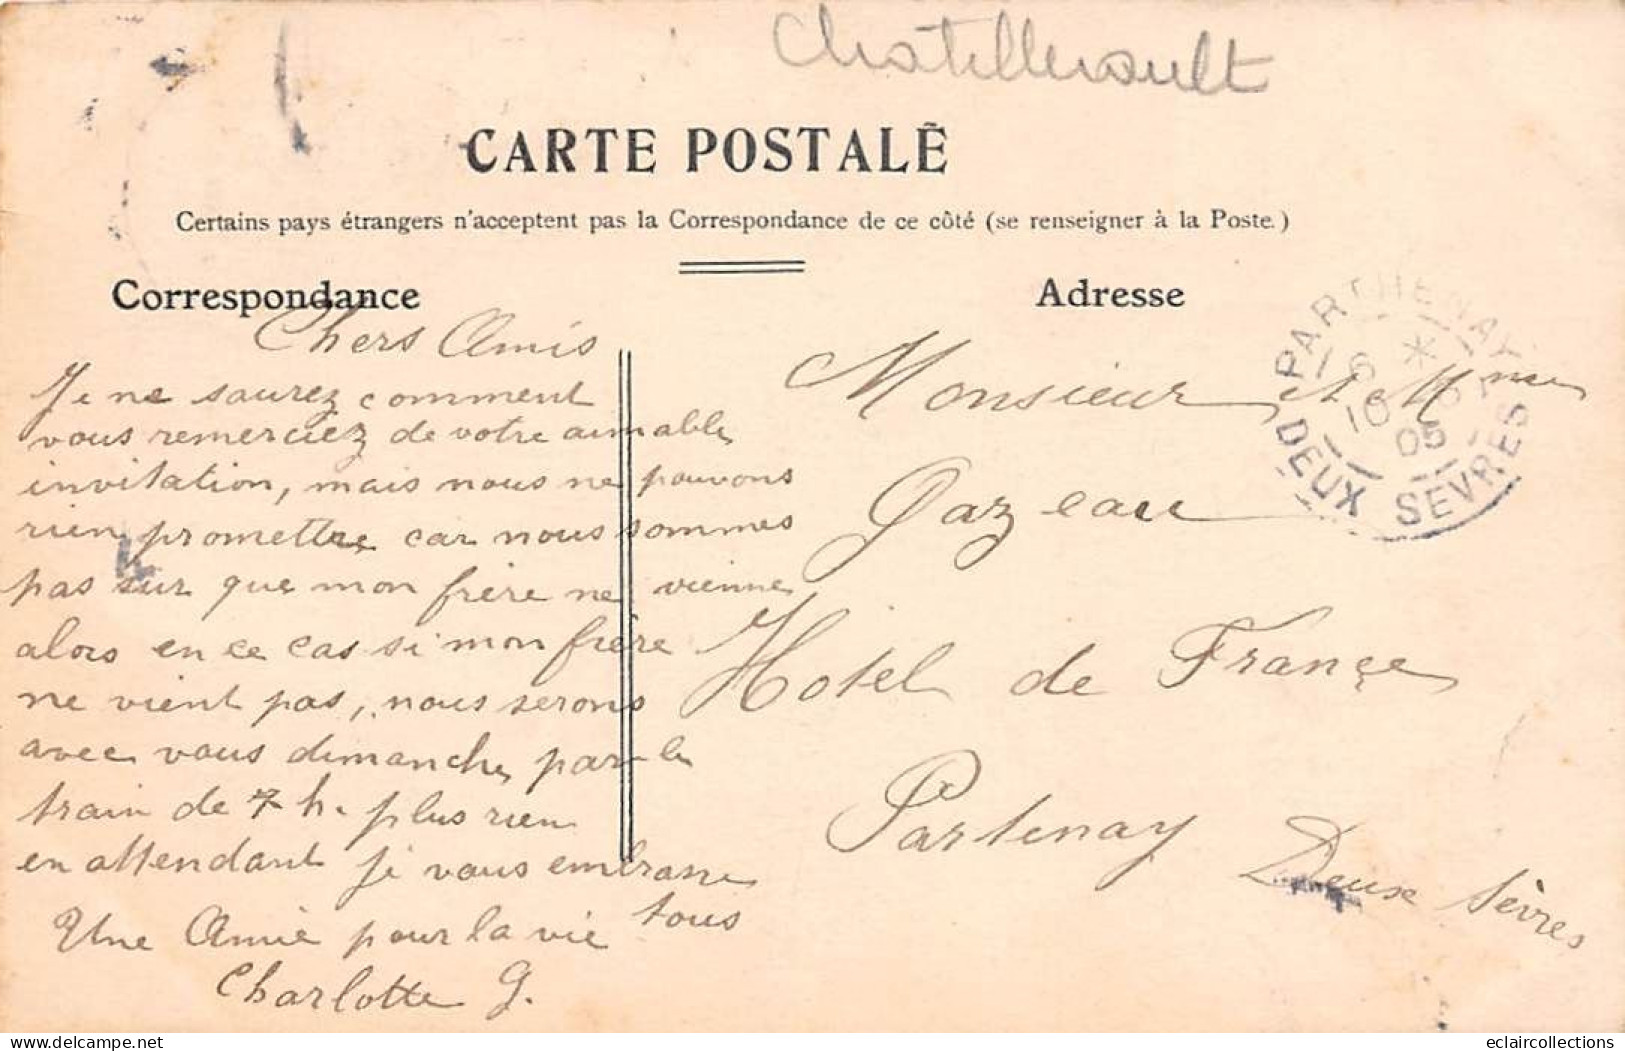 Chatellerault
CARTE POSTALE
Certains pays étrangers n'acceptent pas la Correspondance de ce côté (se renseigner à la Poste.)
Correspondance
Chers Amis
Je ne saurez comment
vous remerciez de votre aimable
invitation, mais nous ne pouvons
rien promettre car nous sommes
pas sur que mon frère ne vienne
alors en ce cas si mon frère
ne vient pas, nous serons
avec vous dimanche par le
train de 7 h. plus rien
en attendant je vous embrasse
tous
Une Amie pour la vie
Charlotte G.
Adresse
Monsieur et Mme
Gazeau
Hotel de France
Partenay
Deux Sèvres
PARTHENAY
6 *
10
05
DEUX SEVRES
www.delcampe.net
eclaircollections